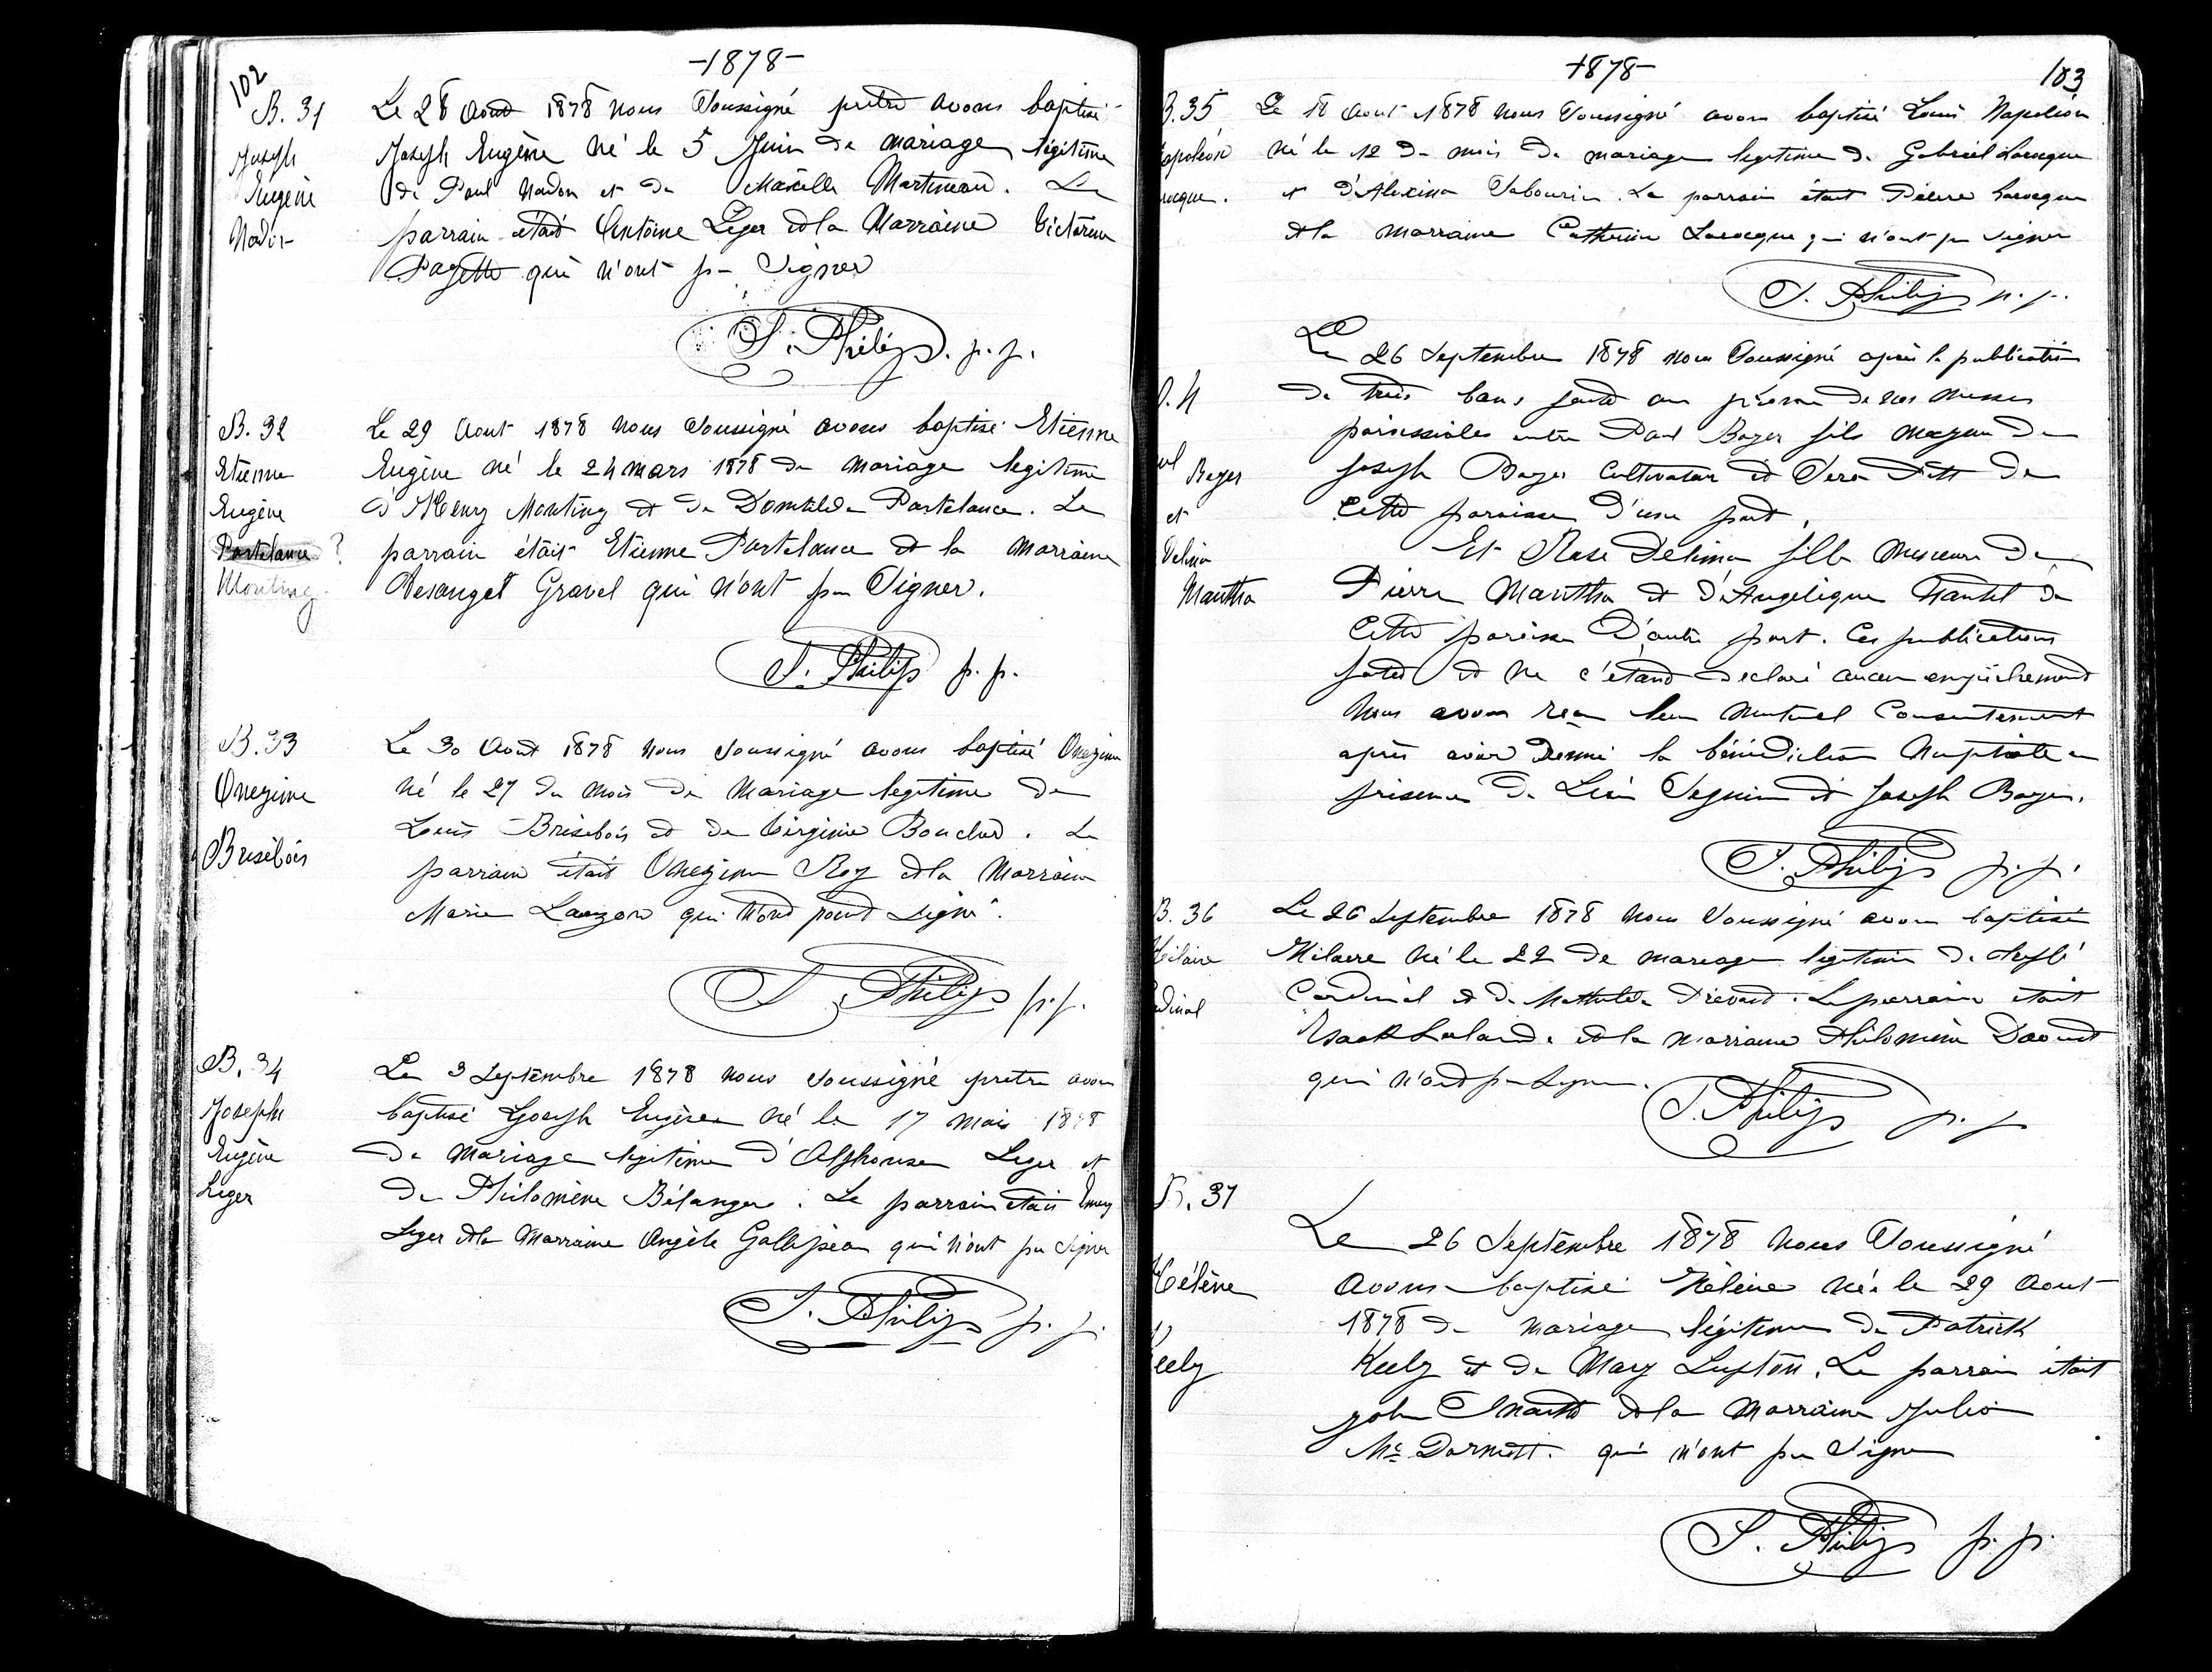 102
-1878-
B. 31
Joseph
Eugène
Nadon
Le 28 Aout 1878 nous Soussigné pretre avons baptisé
Joseph Eugène né le 5 Juin de mariage légitime
de Paul Nadon et de Martineau. Le
parrain était Antoine Leger et la Marraine Victorine
qui n'ont pu Signer
S. Philips. p. p.
B. 32
Etienne
Eugène
Portelance ?
Monting
Le 29 Aout 1878 nous Soussigné avons baptisé Etienne
Eugène né le 24 mars 1878 du mariage legitime
d'Henry Monting et de Domitilde Portelance. Le
parrain était Etienne Portelance et la marraine
Gravel qui n'ont pu Signer.
S. Philips p. p.
B. 33
Onezime
Brisébois
Le 30 Aout 1878 nous soussigné avons baptisé Onezime
né le 27 du mois de Mariage legitime de
Louis Brisebois et de Virginie Boucher. Le
parrain était Onezime Roy et la Marraine
Marie Lauzon qui n'ont point signé.
S. Philips p. p.
B. 34
Joseph
Eugène
Leger
Le 3 Septembre 1878 nous soussigné pretre avons
baptisé Joseph Eugène né le 17 mois 1878
de mariage legitime d'Alphonse Leger et
de Philomène Bélanger. Le parrain était Emery
Leger et la Marraine Angèle Galipeau qui n'ont pu signer
S. Philips p. p.
1878-
103
B. 35
apoléon
rocque.
Le 18 Aout 1878 nous Soussigné avons baptisé Louis Napoléon
né le 12 du mois de mariage legitime de Gabriel Larocque
et d'Alexina Sabourin. Le parrain était Pierre Larocque
et la marraine Catherine Larocque qui n'ont pu signer
S. Philips p. p.
4
ul Boyer
et
Delima
Mantha
Le 26 Septembre 1878 nous Soussigné après la publication
de trois bans faite au prone de nos messes
paroissiales entre Paul Boyer fils mageur de
Joseph Boyer Cultivateur et de
Cette paroisse d'une part,
Et Rose Delima fille mineure de
Pierre Mantha et d'Angelique de
Cette paroisse D'autre part. Ces publications
faites et ne c'étant declaré aucun empêchement
Nous avons reçu leur mutuel Consentement
après avoir donné la bénédiction Nuptiale en
présence de Léon Seguin et Joseph Boyer.
S. Philips p. p.
B. 36
Hilaire
dinal
Le 26 Septembre 1878 nous Soussigné avons baptisé
Hilaire né le 22 de mariage legitime de
Cardinal et de Mathilde . Le parrain était
Isaak Lalande et la marraine Philomène Daoust
qui n'ont pu Signer.
S. Philips p. p
B. 37
Hélène
Keely
Le 26 Septembre 1878 nous Soussigné
avons baptisé Hélène née le 29 Aout
1878 de mariage légitime de Patrick
Keely et de Mary Lupton. Le parrain était
John et la marraine Julia
qui n'ont pu Signer
S. Philips p. p.